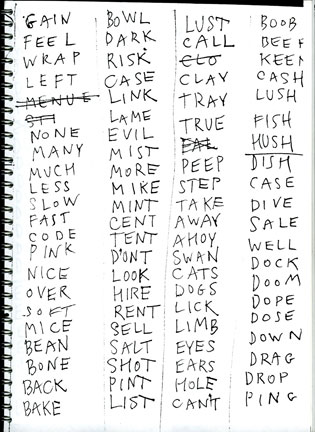 GAIN
FEEL
WRAP
LEFT
MENUE
NONE
MANY
MUCH
LESS
SLOW
FAST
CODE
PINK
NICE
OVER
SOFT
MICE
BEAN
BONE
BACK
BAKE
BOWL
DARK
RISK
CASE
LINK
LAME
EVIL
MIST
MORE
MIKE
MINT
CENT
TENT
D'ONT
LOOK
HIRE
RENT
SELL
SALT
SHOT
PINT
LIST
LUST
CALL
CLO
CLAY
TRAY
TRUE
PEEP
STEP
TAKE
AWAY
AHOY
SWAN
CATS
DOGS
LICK
LIMB
EYES
EARS
HOLE
CAN'T
BOOB
BEEF
KEEN
CASH
LUSH
FISH
HUSH
DISH
CASE
DIVE
SALE
WELL
DOCK
DOOM
DOPE
DOSE
DOWN
DRAG
DROP
PING